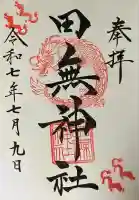 奉拝
田無神社
令和七年七月九日